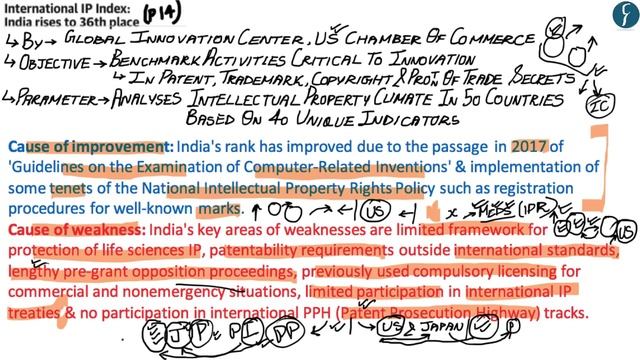 International IP Index: (P14)
India rises to 36th place
↳ BY → GLOBAL INNOVATION CENTER, US CHAMBER OF COMMERCE
↳ OBJECTIVE → BENCHMARK ACTIVITIES CRITICAL TO INNOVATION
↳ IN PATENT, TRADEMARK, COPYRIGHT & PROTN OF TRADE SECRETS
↳ PARAMETER → ANALYSES INTELLECTUAL PROPERTY CLIMATE IN 50 COUNTRIES
BASED ON 40 UNIQUE INDICATORS
IC
Cause of improvement: India's rank has improved due to the passage in 2017 of
'Guidelines on the Examination of Computer-Related Inventions' & implementation of
some tenets of the National Intellectual Property Rights Policy such as registration
procedures for well-known marks.
US
x MEDS (IPR)
US
Cause of weakness: India's key areas of weaknesses are limited framework for
protection of life sciences IP, patentability requirements outside international standards,
lengthy pre-grant opposition proceedings, previously used compulsory licensing for
commercial and nonemergency situations, limited participation in international IP
treaties & no participation in international PPH (Patent Prosecution Highway) tracks.
J P PI PP US & JAPAN P